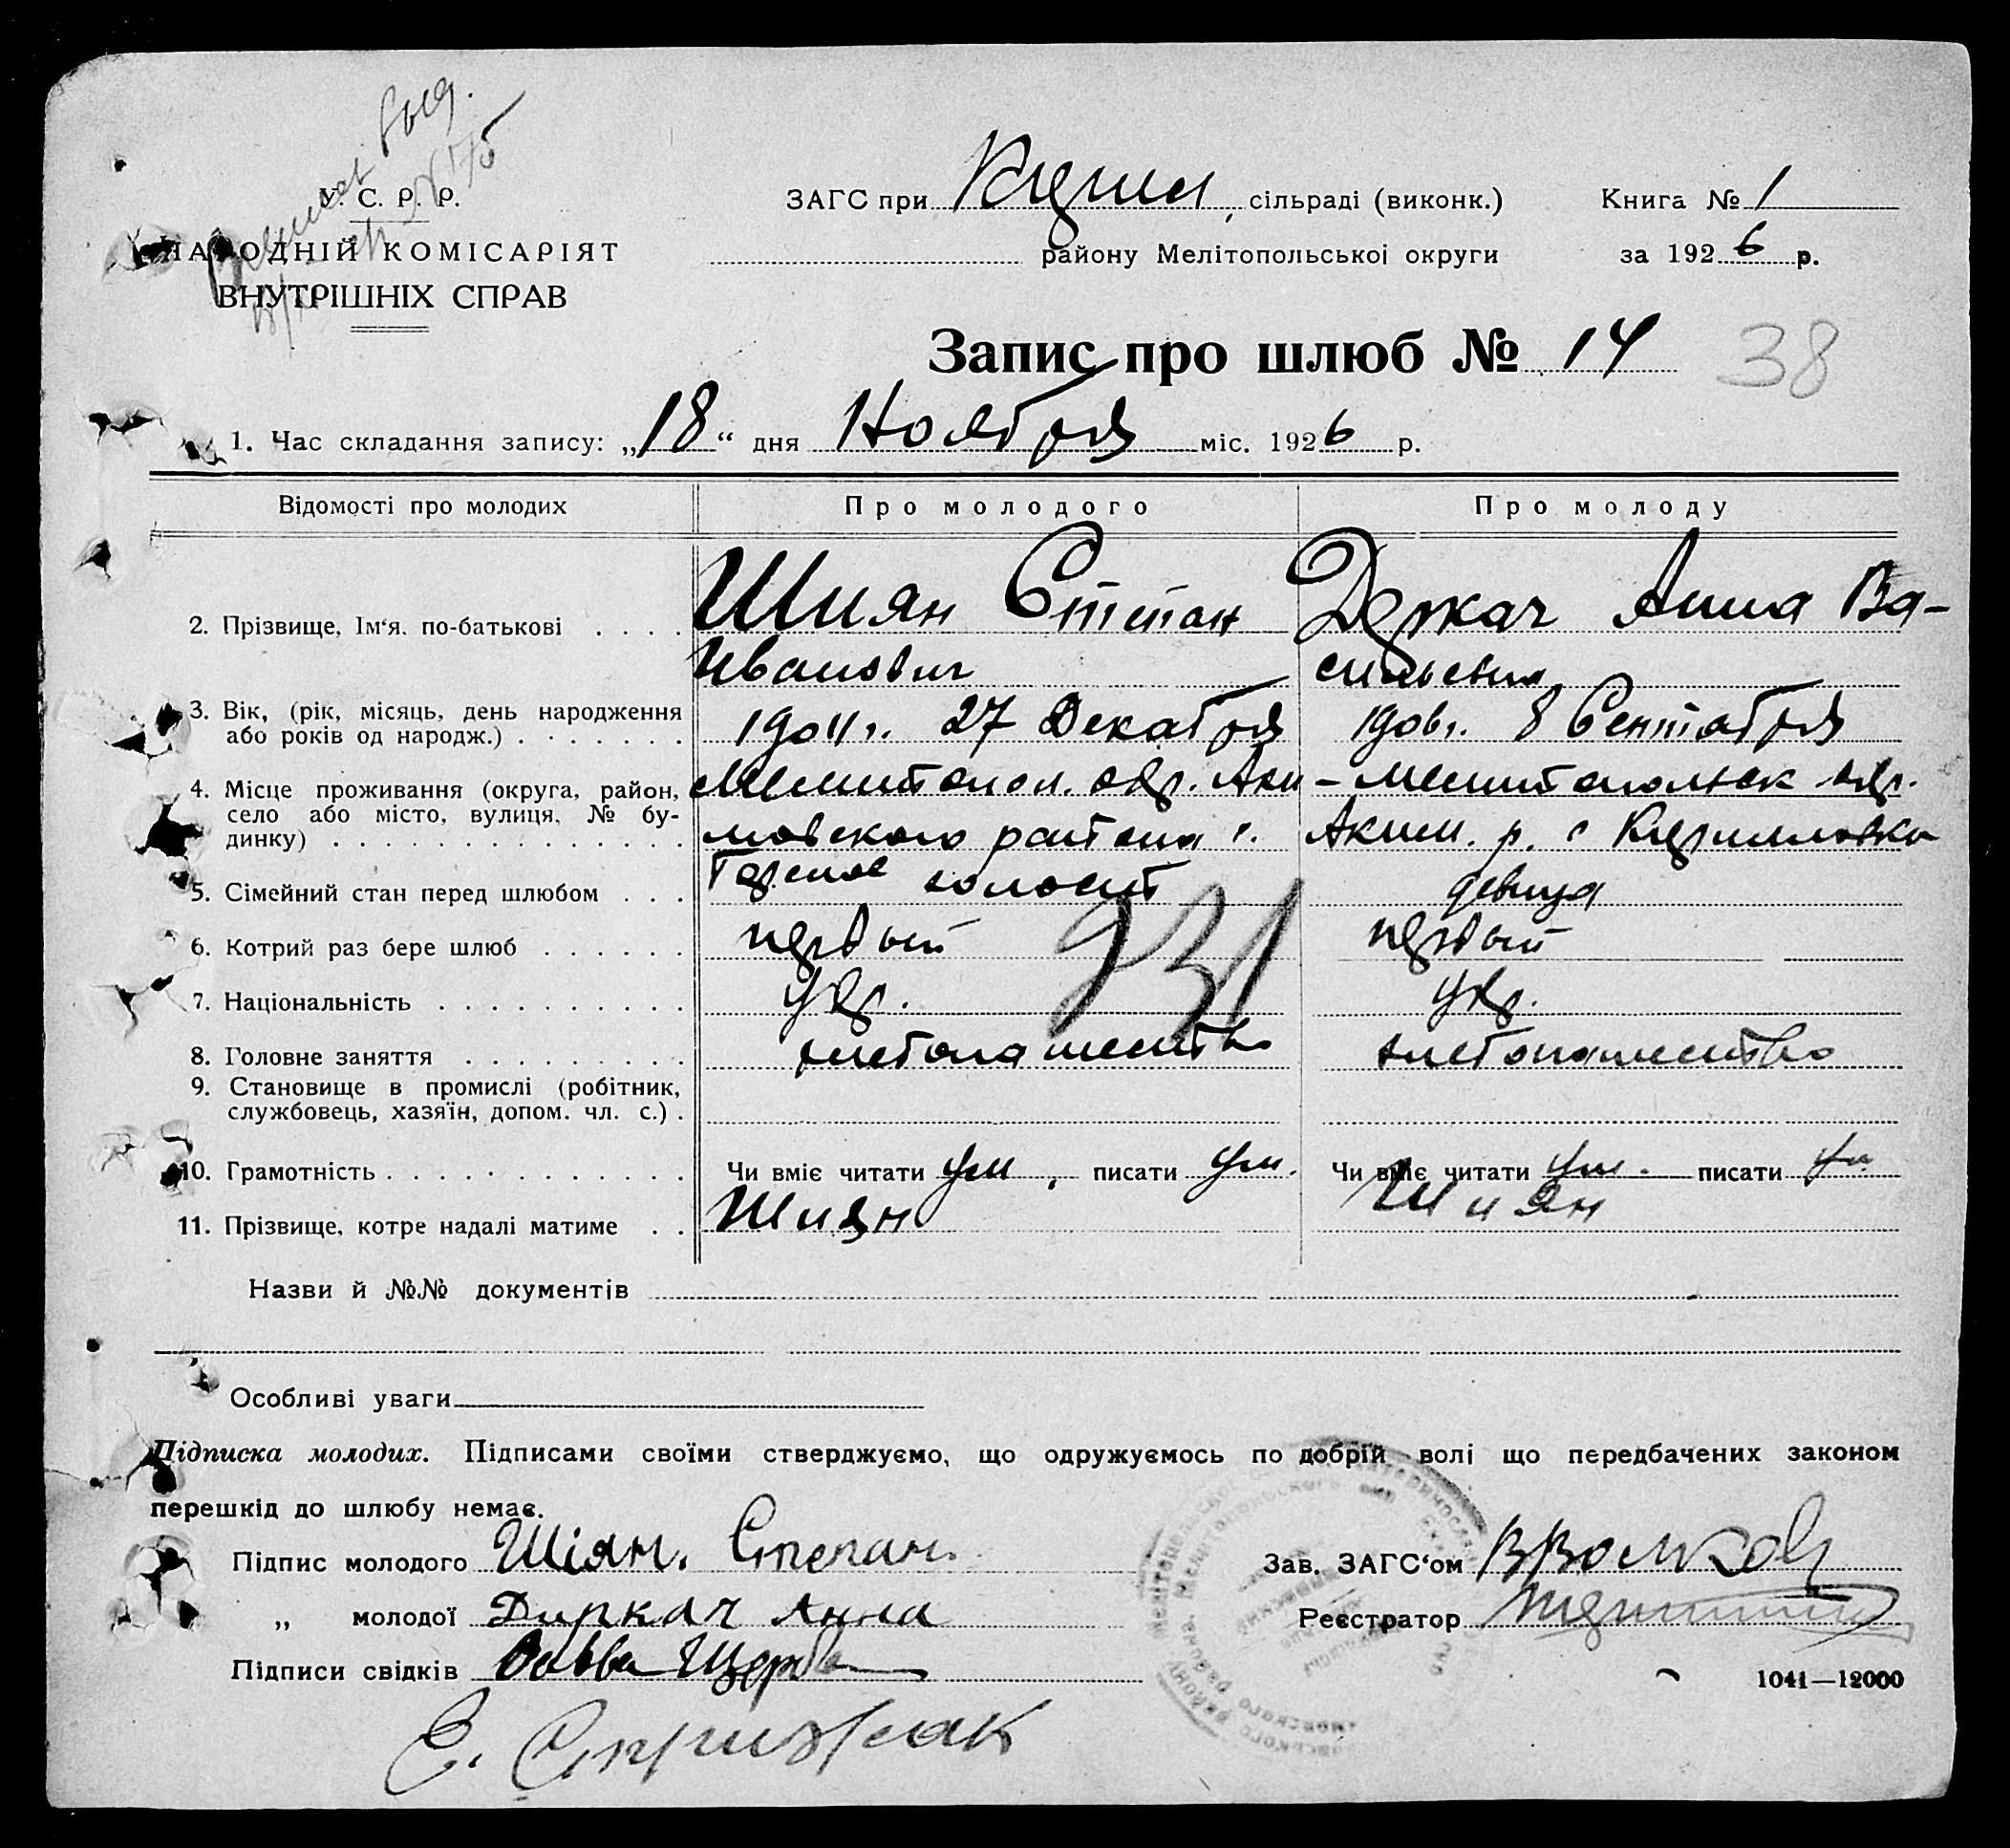 У. С. Р. Р.
НАРОДНІЙ КОМІСАРІЯТ
ВНУТРІШНІХ СПРАВ
ЗАГС при Кирил, сільраді (виконк.) Книга № 1
району Мелітопольської округи за 1926 р.
Запис про шлюб № 14 38
1. Час складання запису: „18“ дня Ноября міс. 1926 р.
Відомості про молодих Про молодого Про молоду
2. Прізвище, Ім‘я, по-батькові Шиян Степан Деркач Анна Ва-
Иванович сильевна
3. Вік, (рік, місяць, день народження
або років од народж.) 1904 г. 27 Декабря 1906 г. 8 Сентября
4. Місце проживання (округа, район, Мелитопол. окр. Аки- Мелитопольск окр.
село або місто, вулиця, № бу- мовского района с. Аким. р. с Кирилловка
динку)
5. Сімейний стан перед шлюбом холост девица
6. Котрий раз бере шлюб первый первый
7. Національність укр. укр.
931
8. Головне заняття хлебопашество хлебопашество
9. Становище в промислі (робітник,
службовець, хазяїн, допом. чл. с.)
10. Грамотність Чи вміє читати ум, писати ум. Чи вміє читати ум. писати ум
11. Прізвище, котре надалі матиме Шиян Шиян
Назви й №№ документів
Особливі уваги
Підписка молодих. Підписами своїми стверджуємо, що одружуємось по добрій волі що передбачених законом
перешкід до шлюбу немає.
Підпис молодого Шіян. Степан. Зав. ЗАГС‘ом ВВолков
„ молодої Диркач Анна Реєстратор
Підписи свідків Щерба
1041—12000
Е. Стрижак